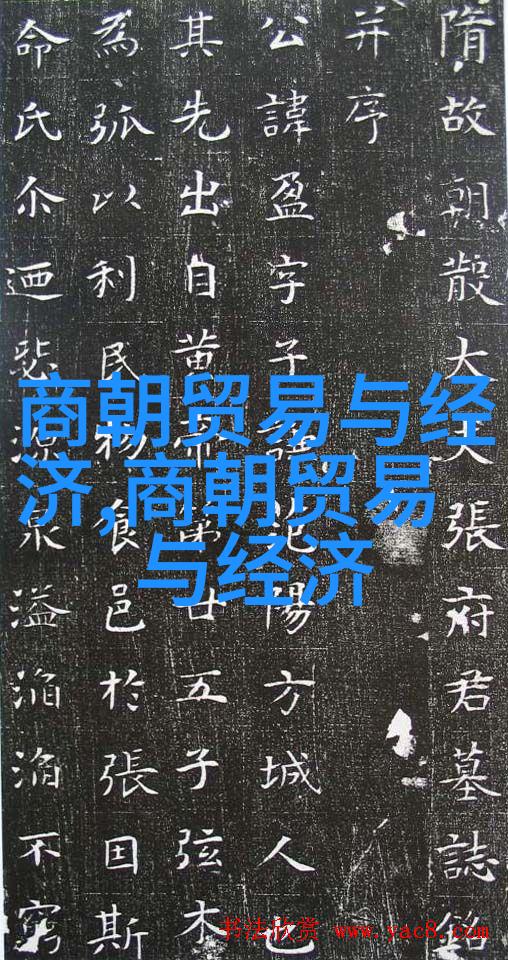 隋故朝散大夫張府君墓誌銘
并序
公諱盈字子陽方城人也
其先出自黄帝第廿五子弦木
為弧以利民物食邑於張因斯
命氏尒迺悲源泉溢滔滔不窮
商朝贸易与经
济,商朝贸易
与经济
书法欣赏 www.yac8.com